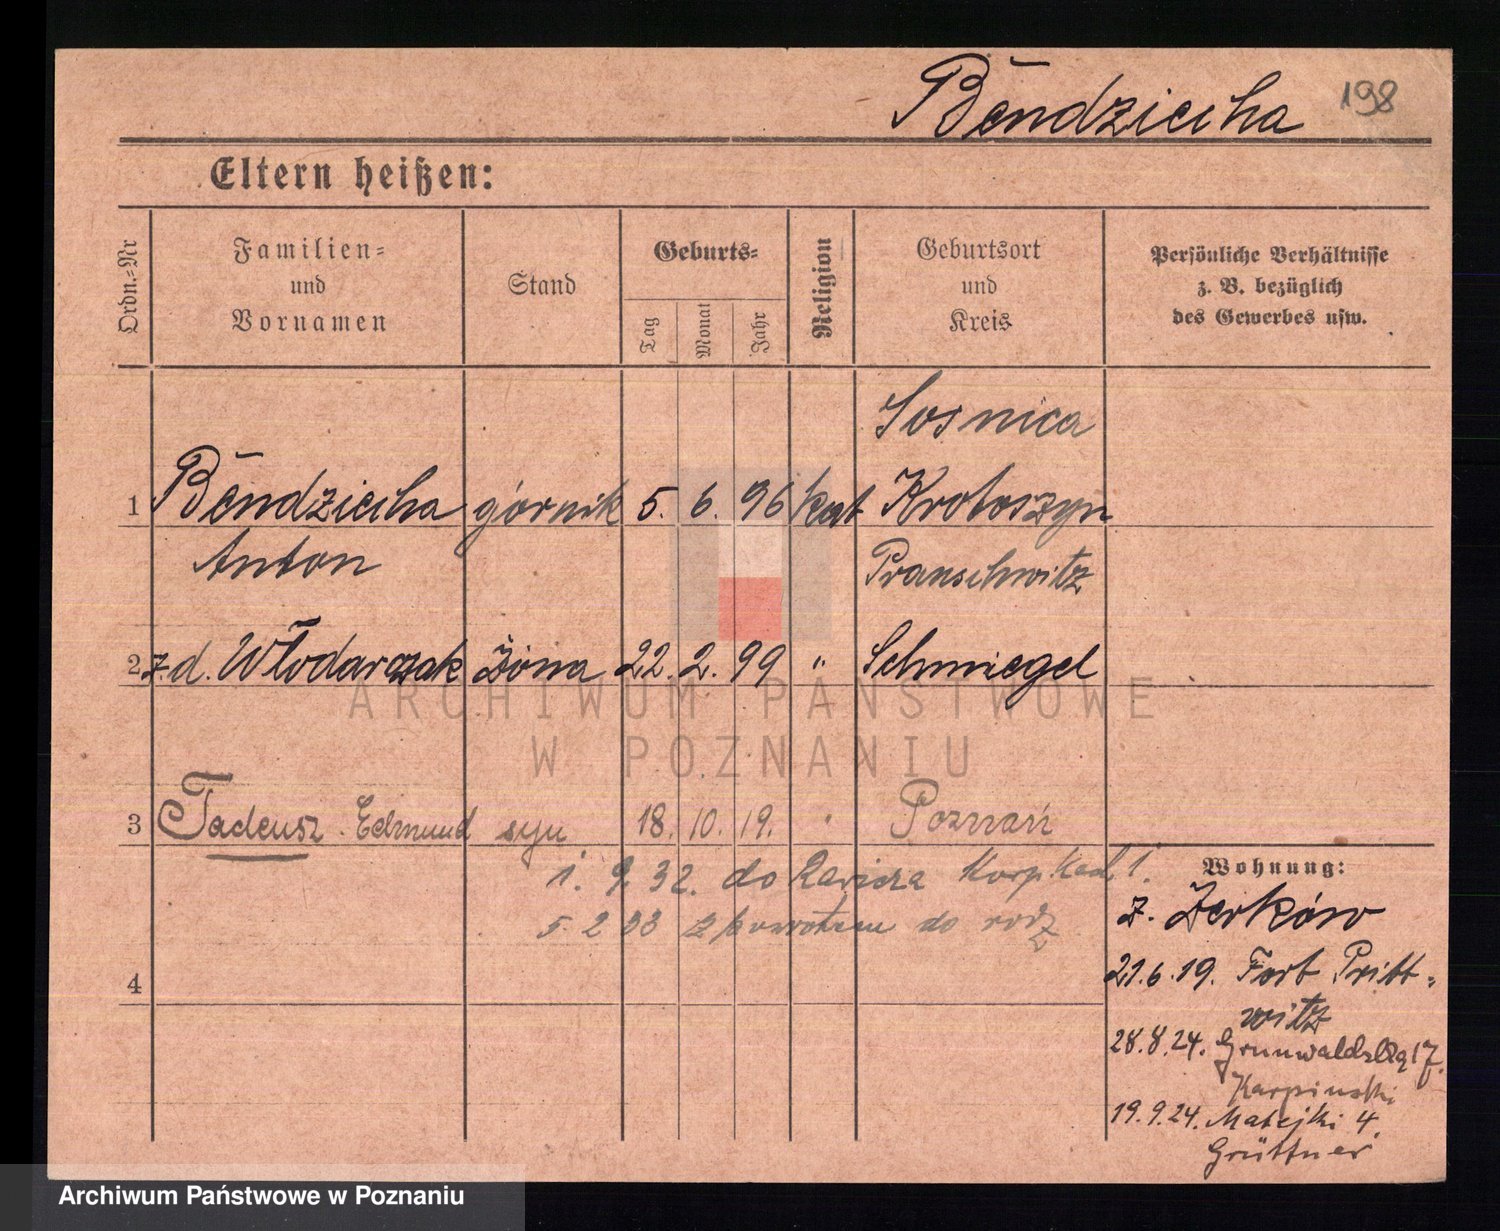 Bēndziecha 198
Eltern heißen:
Ordn.=Nr
Familien=
und
Vornamen
Stand
Geburts=
Tag
Monat
Jahr
Religion
Geburtsort
und
Kreis
Persönliche Verhältnisse
z. B. bezüglich
des Gewerbes usw.
Sosnica
1 Bēndziecha górnik 5. 6. 96 kat Krotoszyn
Anton
Pranschwitz
2 z.d. Włodarczak żona 22. 2. 99 " Schmiegel
ARCHIWUM PAŃSTWOWE
W POZNANIU
3 Tadeusz Edmund syn 18. 10. 19. " Poznań
1. 9. 32. do Rawicza Korp. Kad. 1.
5. 2 33 z powrotem do rodz
4
Wohnung:
z. Żerków
21.6.19. Fort Pritt=
witz
28.8.24. 17.
Karpinski
19.9.24. Matejki 4.
Grüttner
Archiwum Państwowe w Poznaniu